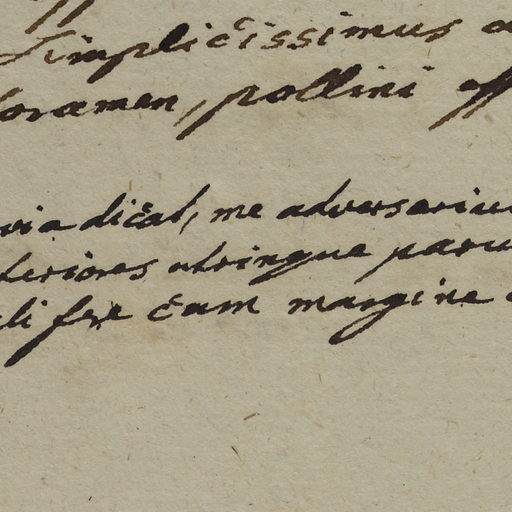 simplicissimus
foramen, pollini
via dicat, me adversariu
teriores utrinque paru
li fere cum margine